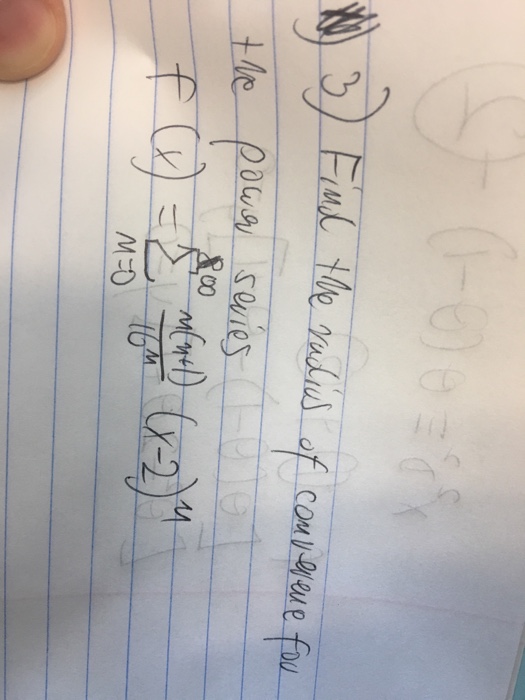 3) Find the radius of convergence for
the power series
f(x) = ∞ Σ n=0 n(n+1)/16ⁿ (x-2)ⁿ